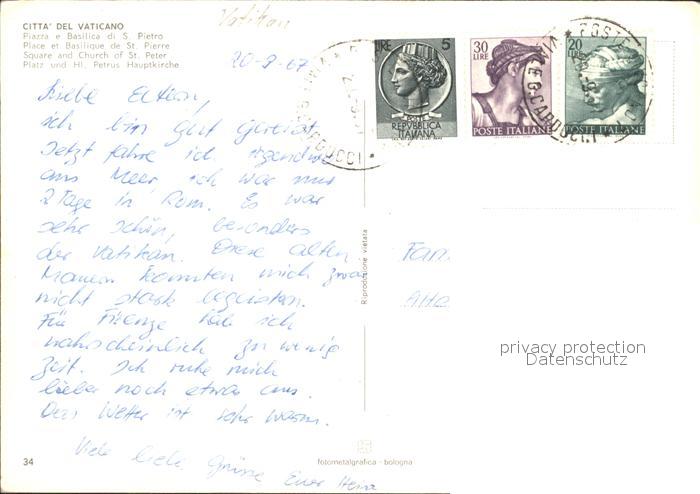 Vatikan
CITTA' DEL VATICANO
Piazza e Basilica di S. Pietro
Place et Basilique de St. Pierre
Square and Church of St. Peter
Platz und Hl. Petrus Hauptkirche
20-9-67
Liebe Eltern,
ich bin gut gereist.
Jetzt fahre ich irgendwo
ans Meer, ich war nur
2 Tage in Rom. Es war
sehr schön, besonders
der Vatikan. Diese alten
Mauern konnten mich zwar
nicht stark begeistern.
Für Firenze hab ich
wahrscheinlich zu wenig
Zeit. Ich ruhe mich
lieber noch etwas aus.
Das Wetter ist sehr warm.
Viele liebe Grüsse Euer Heinz
34
fotometalgrafica - bologna
Riproduzione vietata
LIRE 5
REPUBBLICA
ITALIANA
30
LIRE
POSTE ITALIANE
20
LIRE
POSTE ITALIANE
Fam
privacy protection
Datenschutz